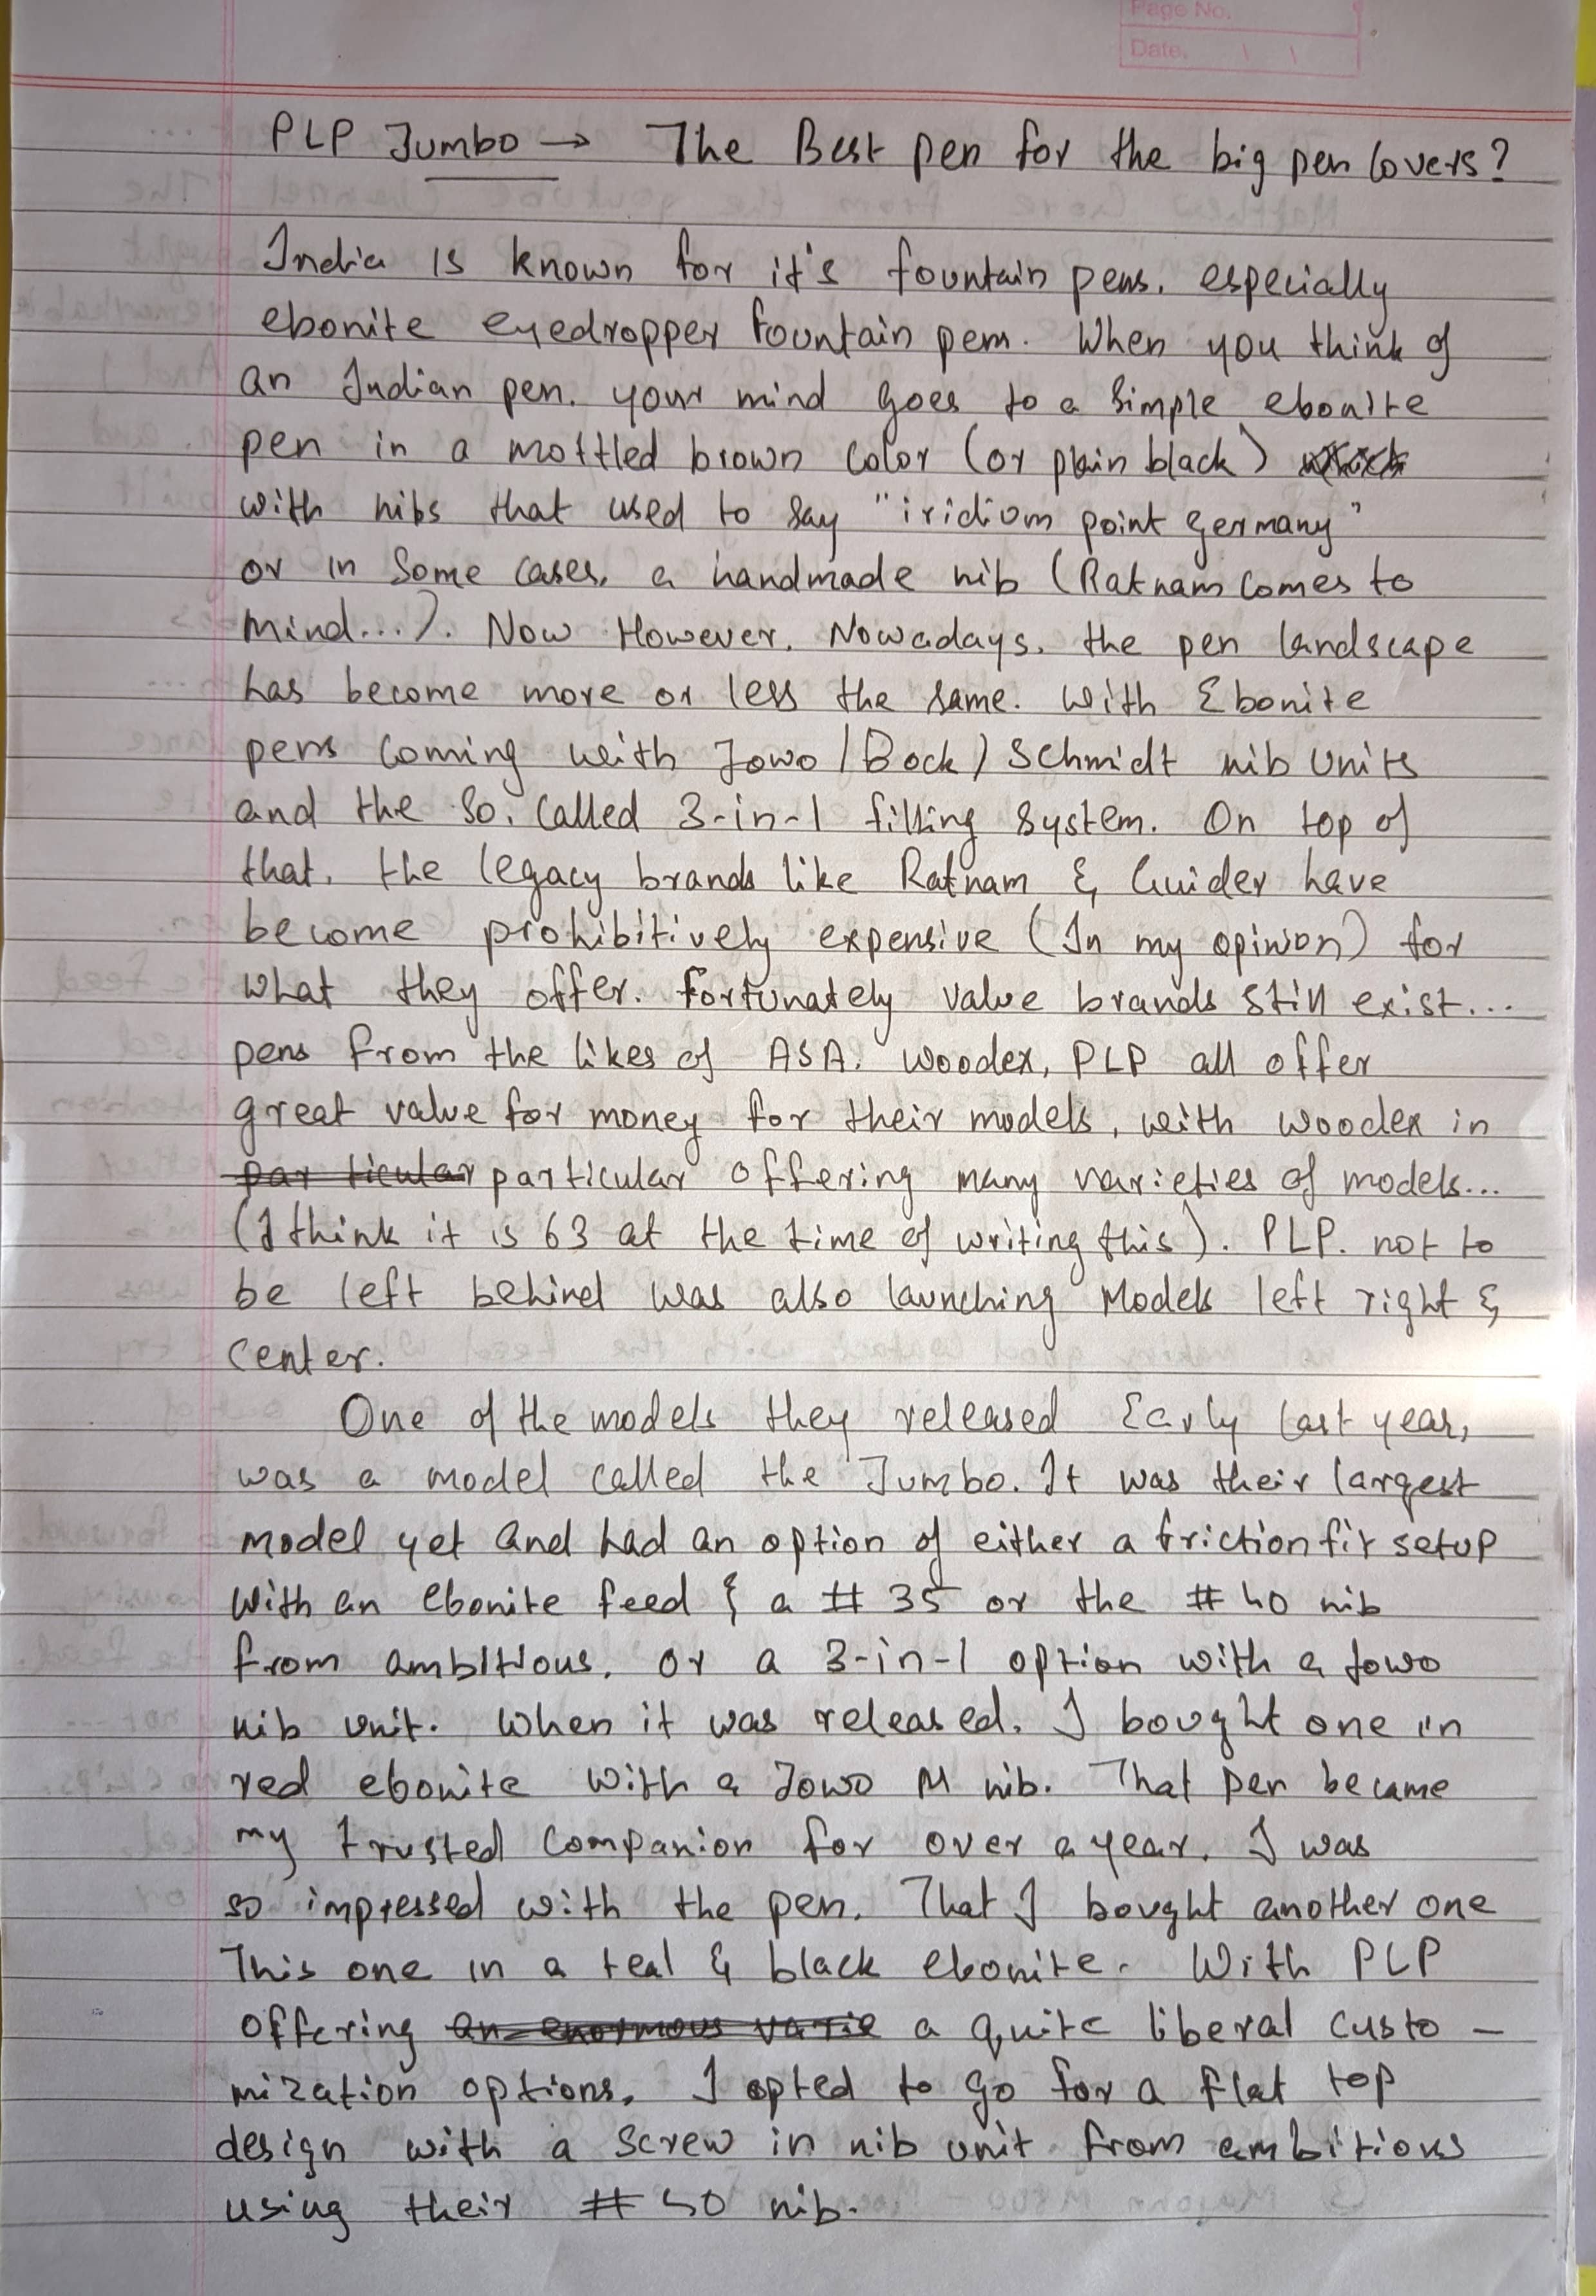 Page No.
Date.
PLP Jumbo → The Best pen for the big pen lovers?
India is known for it's fountain pens, especially
ebonite eyedropper fountain pens. When you think of
an Indian pen, your mind goes to a simple ebonite
pen in a mottled brown color (or plain black)
with nibs that used to say "iridium point germany"
or in some cases, a handmade nib (Ratnam comes to
mind...). Now However, Nowadays, the pen landscape
has become more or less the same. With Ebonite
pens coming with Jowo/Bock/Schmidt nib units
and the so, called 3-in-1 filling system. On top of
that, the legacy brands like Ratnam & Guider have
become prohibitively expensive (In my opinion) for
what they offer. Fortunately value brands still exist...
pens from the likes of ASA, Woodex, PLP all offer
great value for money for their models, with woodex in
par ticular particular offering many varieties of models...
(I think it is 63 at the time of writing this). PLP, not to
be left behind was also launching Models left right &
center.
One of the models they released Early last year,
was a model called the Jumbo. It was their largest
model yet and had an option of either a friction fit setup
with an ebonite feed & a # 35 or the # 40 nib
from ambitious, or a 3-in-1 option with a Jowo
nib unit. When it was released, I bought one in
red ebonite with a Jowo M nib. That pen became
my trusted companion for over a year. I was
so impressed with the pen, That I bought another one
This one in a teal & black ebonite. With PLP
offering an enormous varie a quite liberal custo-
mization options, I opted to go for a flat top
design with a screw in nib unit from ambitious
using their # nib.